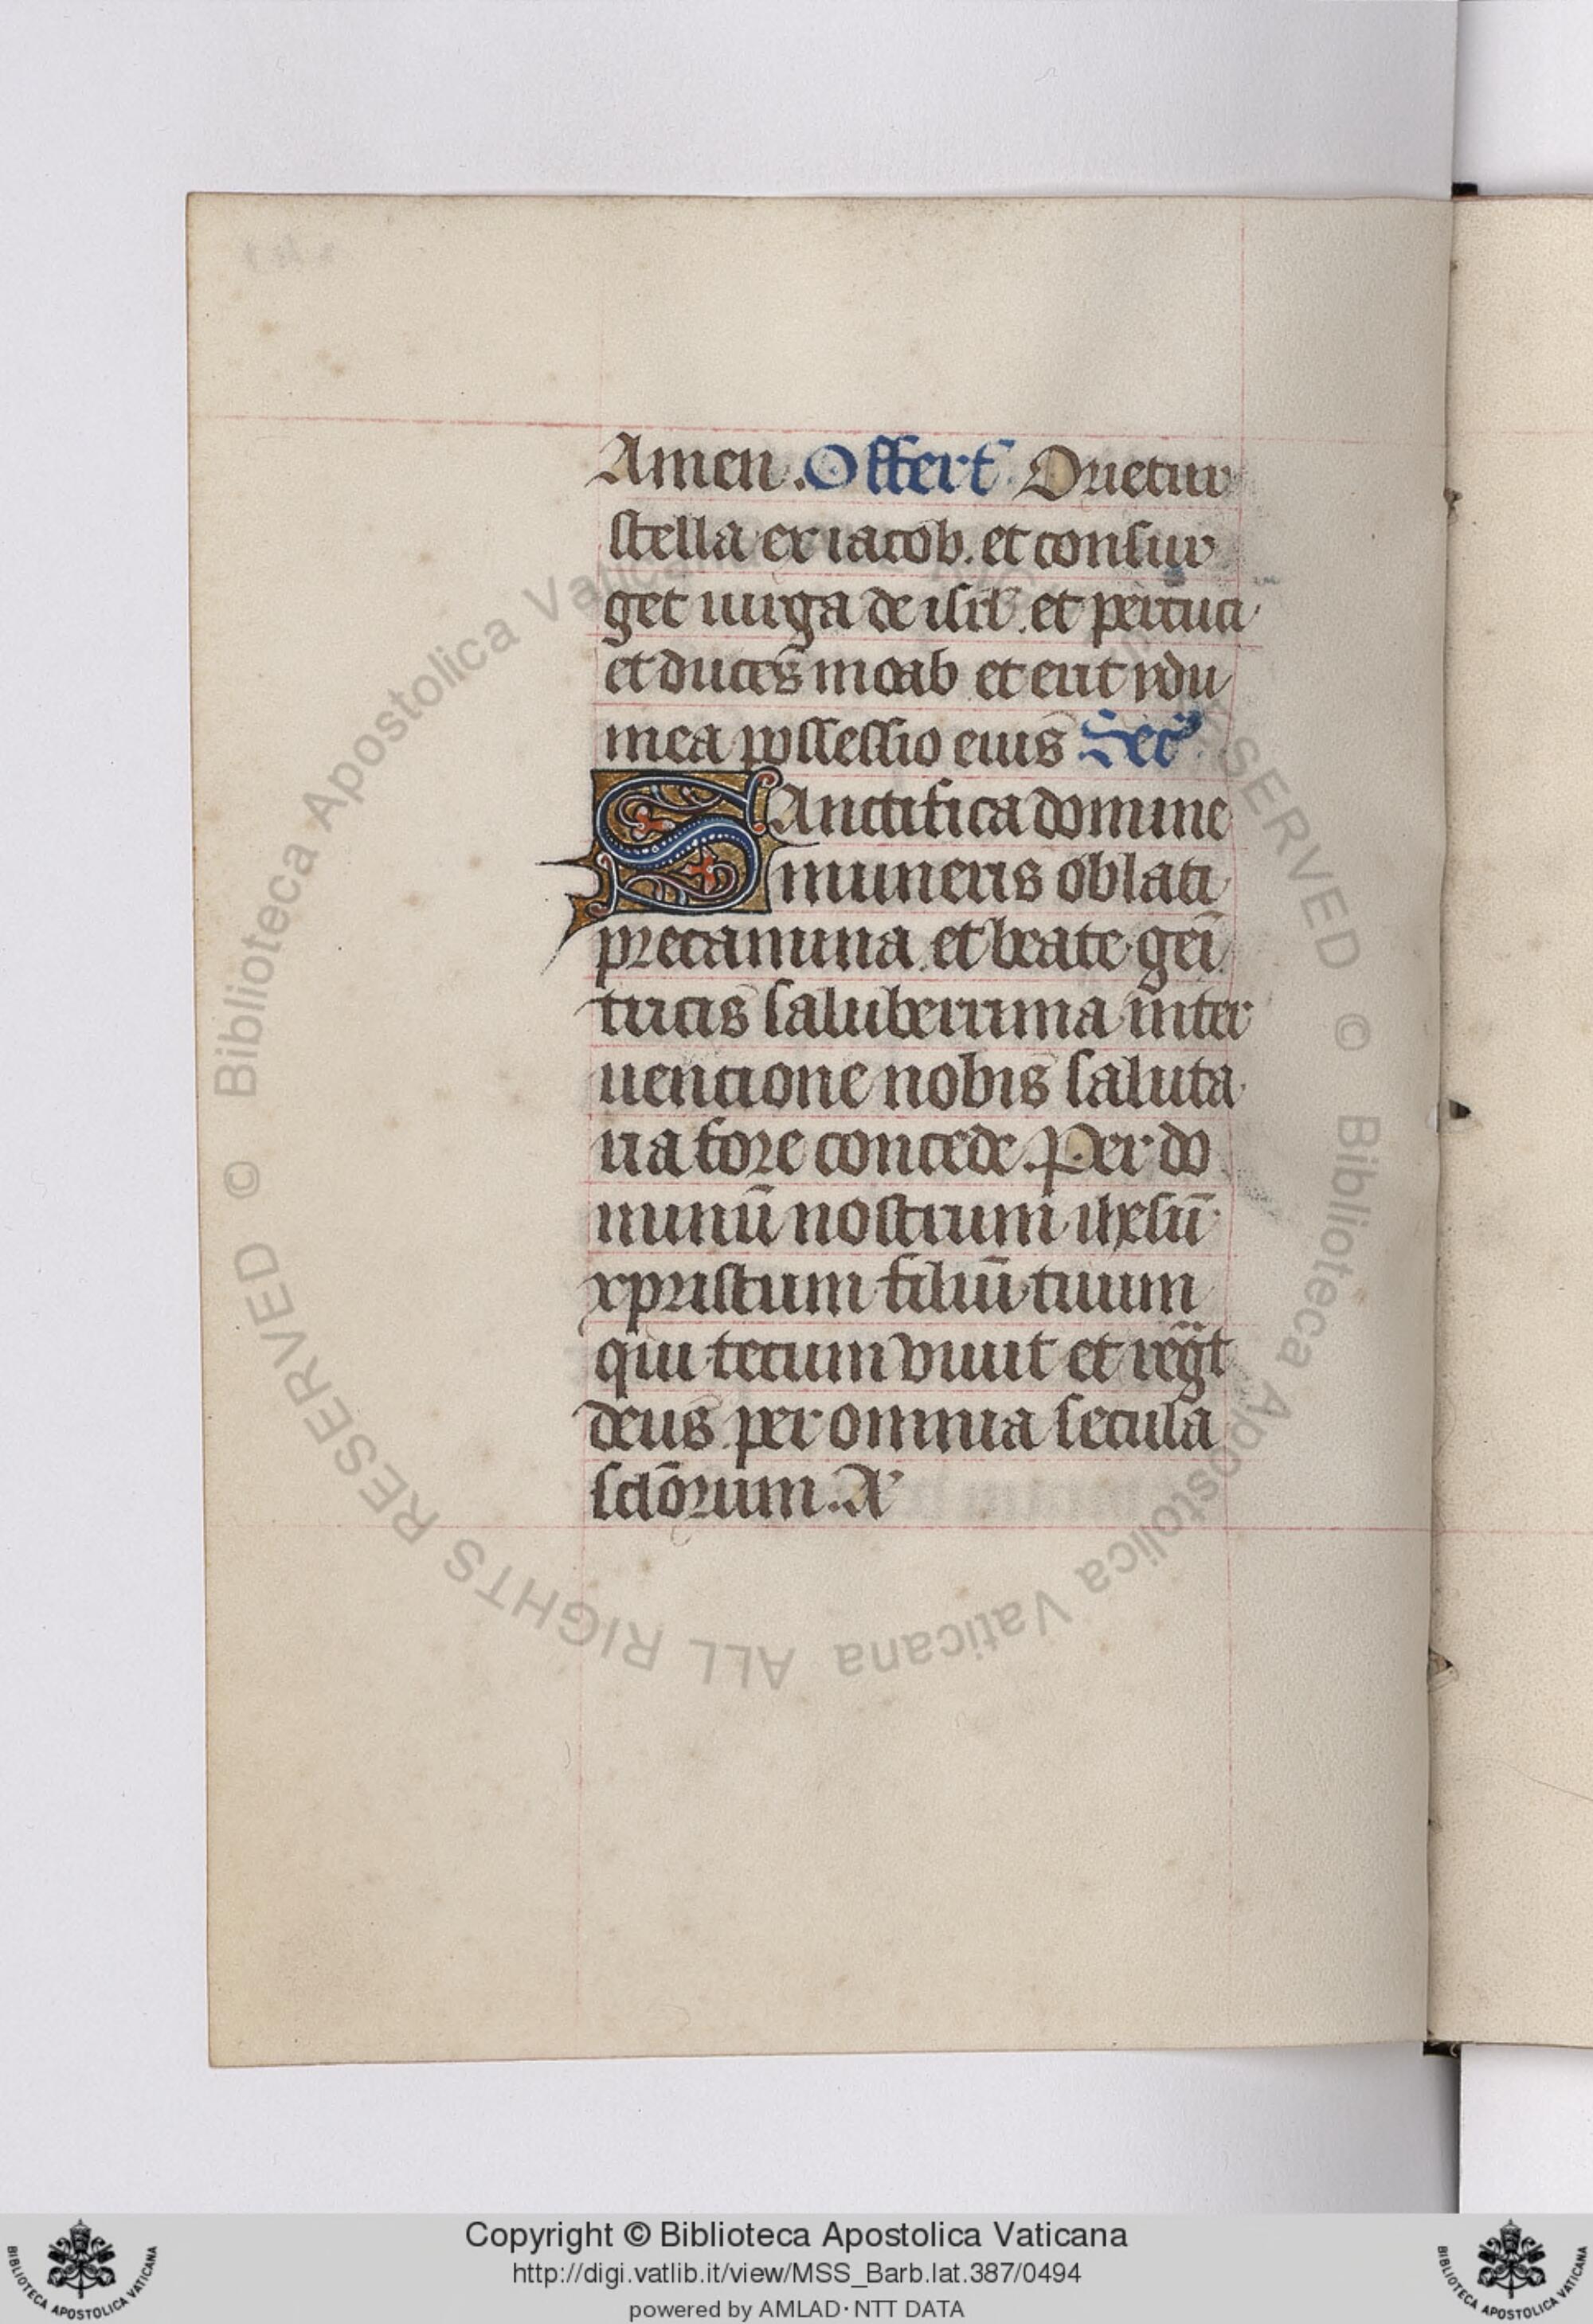 Amen. Offert̄ Orietur
stella ex iacob. et consur
get uirga de isrl̄. et percuci
et duces moab et erit ydu
mea possessio eius Secr̄
Sanctifica domine
muneris oblati
precamina et beate geni
tricis saluberrima inter
uencione nobis saluta
ria fore concede. Per do
minū nostrum ihesū
xpristum filiū tuum
qui tecum viuit et regt
deus per omnia secula
sclōrum. A
© Biblioteca Apostolica Vaticana ALL RIGHTS RESERVED
© Biblioteca Apostolica Vaticana ALL RIGHTS RESERVED
Copyright © Biblioteca Apostolica Vaticana
http://digi.vatlib.it/view/MSS_Barb.lat.387/0494
powered by AMLAD·NTT DATA
BIBLIOTECA APOSTOLICA VATICANA
BIBLIOTECA APOSTOLICA VATICANA